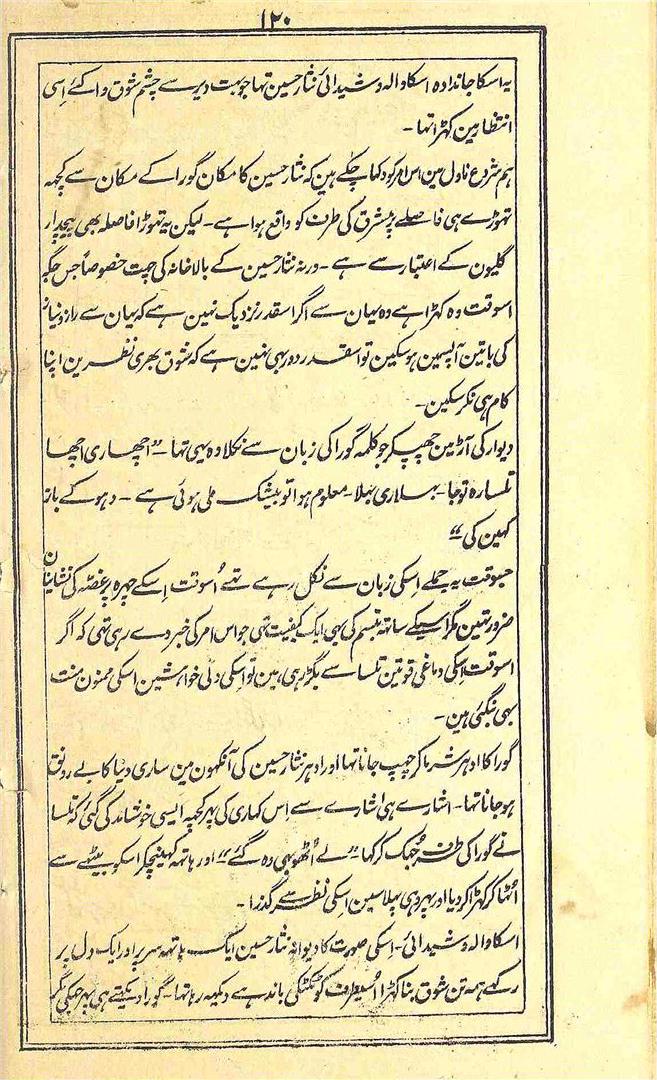 ۱۲۰
یہ اسکا جاندادہ اسکا والہ و شیدائی نثار حسین تہا جو بہت دیر سے چشم شوق وا کئے اسی
انتظار مین کہڑا تہا۔
ہم شروع ناول مین اس امر کو دکہا چکے ہین کہ نثار حسین کا مکان گورا کے مکان سے کچہہ
تہوڑے ہی فاصلے پر مشرق کی طرف کو واقع ہوا ہے۔ لیکن یہ تہوڑا فاصلہ بھی پیچدار
گلیون کے اعتبار سے ہے۔ ورنہ نثار حسین کے بالاخانہ کی چہت خصوصاً جس جگہ
اسوقت وہ کہڑا ہے وہ یہان سے اگر اسقدر نزدیک نہین ہے کہ یہان سے راز و نیاز
کی باتین آپسمین ہو سکین تو اسقدر دور بہی نہین ہے کہ شوق بھری نظرین اپنا
کام ہی نکر سکین۔
دیوار کی آڑ مین چہپ کر جو کلمہ گورا کی زبان سے نکلا وہ یہی تہا۔ "اچھا ری اچھا
تلسا رہ تو جا۔ بہلا ری بہلا۔ معلوم ہوا تو بیشک ملی ہوئی ہے۔ دہوکے باز
کہین کی"
جسوقت یہ جملے اسکی زبان سے نکل رہے تہے اُسوقت اِسکے چہرہ پر غصّہ کی نشانیان
ضرور تہین مگر اسیکے ساتہہ تبسم کی بہی ایک کیفیت تہی جو اس امر کی خبر دے رہی تہی کہ اگر
اسوقت اِسکی دماغی قوتین تلسا سے بگڑ رہی ہین تو اِسکی دلی خواہشین اسکی ممنون منت
بہی بنگئی ہین۔
گورا کا ادہر شرما کر چہپ جانا تہا اور ادہر نثار حسین کی آنکہون مین ساری دنیا کا بے رونق
ہو جانا تہا۔ اشارے ہی اشارے سے اِس کہاری کی پہر کچہہ ایسی خوشامد کی گئی کہ تلسا
نے گورا کی طرف جُہک کر کہا "لے اُٹھو بہی وہ گئے" اور ہاتہہ کہینچکر اسکو بیٹہے سے
اُٹہا کر کہڑا کر دیا اور پہر وہی پہلا سین اِسکی نظر سے گذرا۔
اسکا والہ و شیدائی۔ اِسکی صورت کا دیوانہ نثار حسین ایک ہاتہہ سر پر اور ایک دل پر
رکہے ہمہ تن شوق بنا کہڑا اُسیطرف کو ٹکٹکی باندہے دیکہہ رہا تہا۔ گورا دیکہتے ہی پہر جہجکی مگر